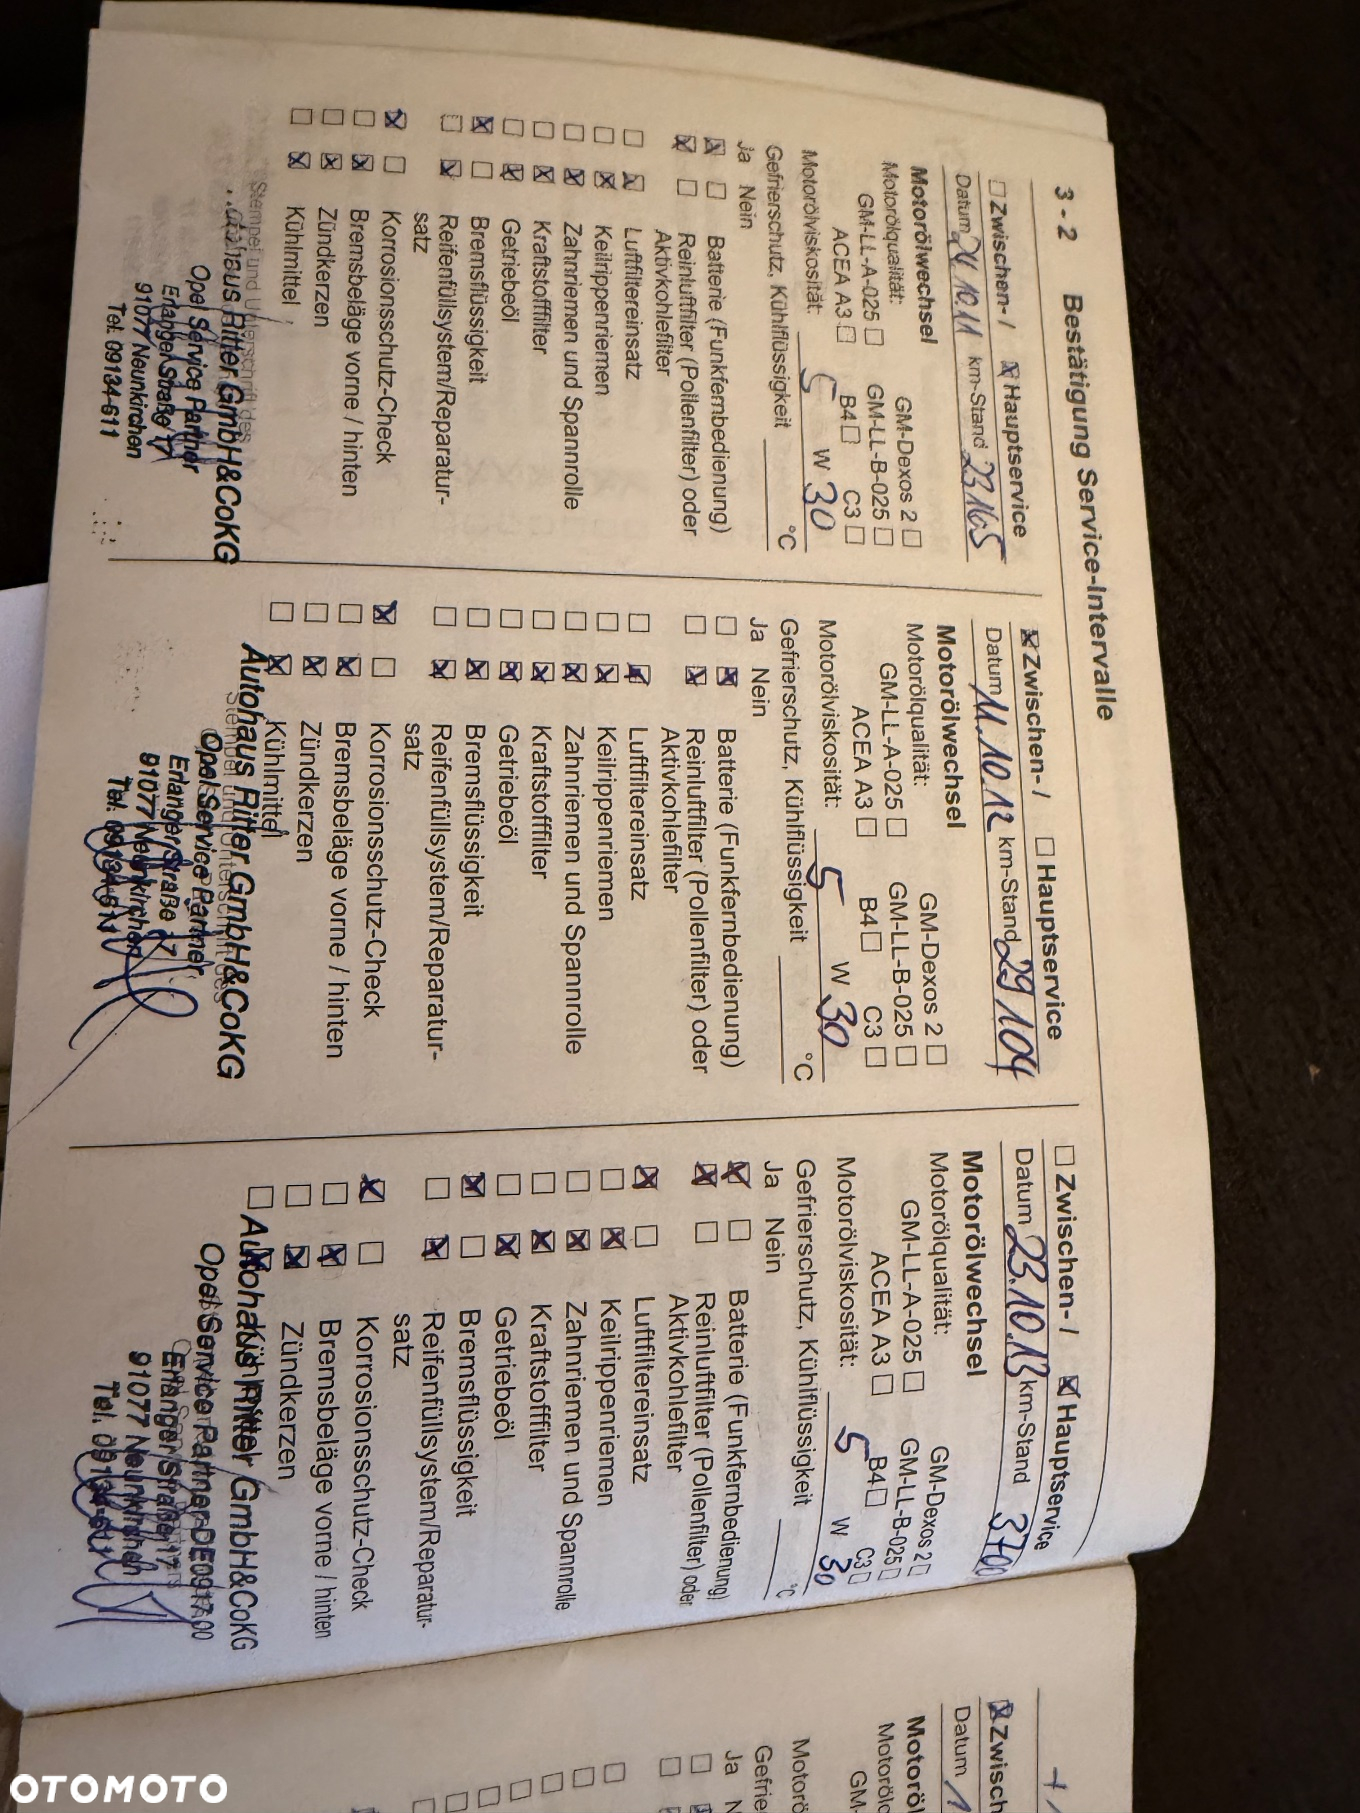 3 - 2 Bestätigung Service-Intervalle
Zwischen- / Hauptservice
Datum 24.10.11 km-Stand 23165
Motorölwechsel
Motorölqualität: GM-Dexos 2
GM-LL-A-025 GM-LL-B-025
ACEA A3 B4 C3
Motorölviskosität: 5 W 30
Gefrierschutz, Kühlflüssigkeit °C
Ja Nein
Batterie (Funkfernbedienung)
Reinluftfilter (Pollenfilter) oder
Aktivkohlefilter
Luftfiltereinsatz
Keilrippenriemen
Zahnriemen und Spannrolle
Kraftstofffilter
Getriebeöl
Bremsflüssigkeit
Reifenfüllsystem/Reparatur-
satz
Korrosionsschutz-Check
Bremsbeläge vorne / hinten
Zündkerzen
Kühlmittel
Stempel und Unterschrift des
Ritter GmbH&CoKG
Opel Service Partner
Erlanger Straße 17
91077 Neunkirchen
Tel. 09134-611
Zwischen- / Hauptservice
Datum 11.10.12 km-Stand 29104
Motorölwechsel
Motorölqualität: GM-Dexos 2
GM-LL-A-025 GM-LL-B-025
ACEA A3 B4 C3
Motorölviskosität: 5 W 30
Gefrierschutz, Kühlflüssigkeit °C
Ja Nein
Batterie (Funkfernbedienung)
Reinluftfilter (Pollenfilter) oder
Aktivkohlefilter
Luftfiltereinsatz
Keilrippenriemen
Zahnriemen und Spannrolle
Kraftstofffilter
Getriebeöl
Bremsflüssigkeit
Reifenfüllsystem/Reparatur-
satz
Korrosionsschutz-Check
Bremsbeläge vorne / hinten
Zündkerzen
Kühlmittel
Stempel und Unterschrift des
Autohaus Ritter GmbH&CoKG
Opel Service Partner
Erlanger Straße 17
91077 Neunkirchen
Tel. 09134-611
Zwischen- / Hauptservice
Datum 23.10.13 km-Stand
Motorölwechsel
Motorölqualität: GM-Dexos 2
GM-LL-A-025 GM-LL-B-025
ACEA A3 B4 C3
Motorölviskosität: 5 W 30
Gefrierschutz, Kühlflüssigkeit °C
Ja Nein
Batterie (Funkfernbedienung)
Reinluftfilter (Pollenfilter) oder
Aktivkohlefilter
Luftfiltereinsatz
Keilrippenriemen
Zahnriemen und Spannrolle
Kraftstofffilter
Getriebeöl
Bremsflüssigkeit
Reifenfüllsystem/Reparatur-
satz
Korrosionsschutz-Check
Bremsbeläge vorne / hinten
Zündkerzen
Kühlmittel
Autohaus Ritter GmbH&CoKG
Opel Service Partner DE091700
Erlanger Straße 17
91077 Neunkirchen
Tel. 09134-611
Zwisch
Datum 1
Motoröl
Motoröl
GM-
Motorö
Gefrie
Ja N
OTOMOTO